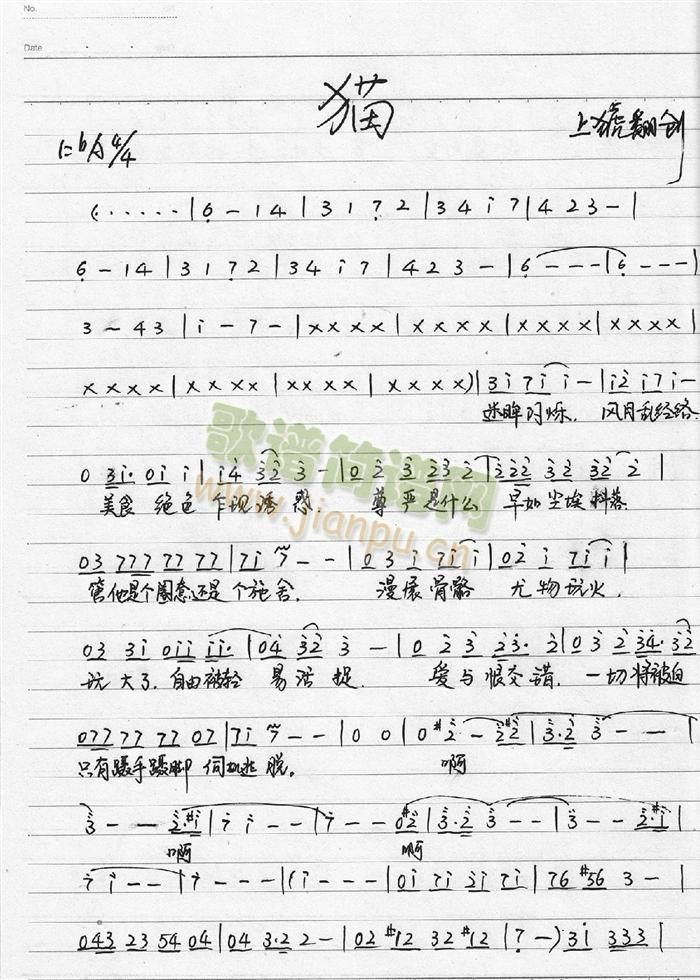 No.
Date
猫
1=bA 4/4
(·····|6-14|3172|34i7|423-|
6-14|3172|34i7|423-|6---|6---|
3-43|i-7-|xxxx|xxxx|xxxx|xxxx|
xxxx|xxxx|xxxx|xxxx)|3i7ii-|i2i7i-
迷眸闪烁. 风月乱经络.
0 3i· 0i i|i4 32 3-|0 2 3 23 2|222 32 32 2|
美食 绝色 乍现诱惑. 尊严是什么 早如尘埃抖落
歌谱简谱网
www.jianpu.cn
03 777 777 77|7i 7--|0 3 i 7i i|02 i 7i i|
管他是个圈套还是个施舍. 漫展骨骼 尤物玩火.
03 3i 0ii ii·|04 32 3-|0 2 3 23· 2|03 2 34· 32
玩大了. 自由被轻易活捉. 爱与恨交错. 一切将被迫
077 77 77 07|7i 7--|0 0|0 #2-22|3·2 3--|
只有蹑手蹑脚 伺机逃脱.
啊
3--2·#i|7 i--|7--02|3·2 3--|3--2·#i|
啊 啊
7 i--|7---|(i---|0i 7i 2i 7i|76 #56 3-|
043 23 54 04|04 3·2 2-|02 #12 32 #12|(7-)3i 333|